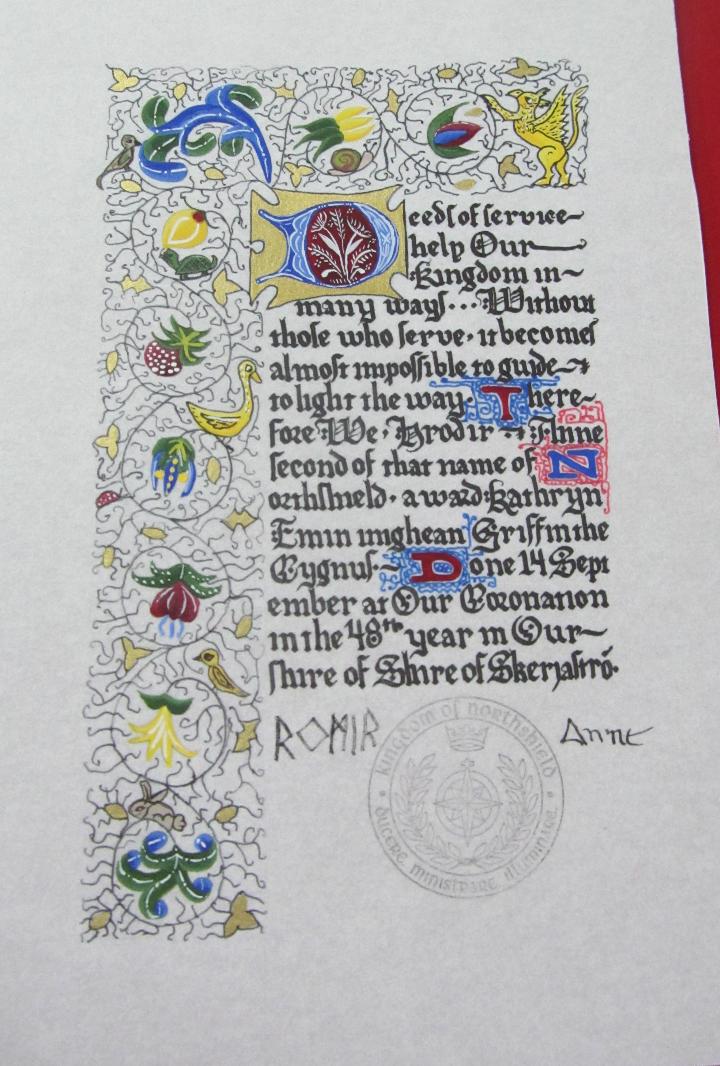 Deeds of service
help Our
Kingdom in
many ways... Without
those who serve. it becomes
almost impossible to guide
to light the way. There-
fore We. Hrodir Anne
second of that name of N
orthshield. award Kathryn
Emin inghean Griffin the
Cygnus. Done 14 Sept
ember at Our Coronation
in the 48th year in Our
shire of Shire of Skerjastrõ.
Anne
Kingdom of Northshield
DUCERE MINISTRARE ILLUMINARE